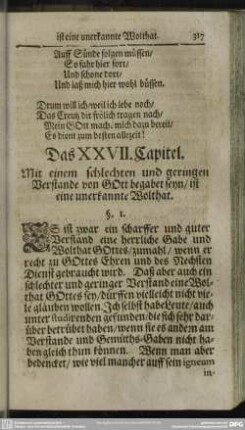 ist eine unerkannte Wolthat. 317
Auff Sünde folgen müssen/
So fahr hier fort/
Und schone dort/
Und laß mich hier wohl büssen.
Drum will ich/weil ich lebe noch/
Das Creutz dir frölich tragen nach/
Mein GOtt mach mich darzu bereit/
Es dient zum besten allezeit!
Das XXVII. Capitel.
Mit einem schlechten und geringen
Verstande von GOtt begabet seyn/ ist
eine unerkannte Wolthat.
§. 1.
ES ist zwar ein scharffer und guter
Verstand eine herrliche Gabe und
Wolthat GOttes/zumahl/ wenn er
recht zu GOttes Ehren und des Nechsten
Dienst gebraucht wird. Daß aber auch ein
schlechter und geringer Verstand eine Wol-
that GOttes sey/dürffen vielleicht nicht vie-
le glauben wollen. Ich selbst habe Leute/auch
unter studirenden gefunden/die sich sehr dar-
über betrübet haben/wenn sie es andern am
Verstande und Gemüths-Gaben nicht ha-
ben gleich thun können. Wenn man aber
bedencket/ wie viel mancher auff sein igneum
in-